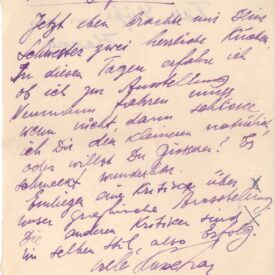 Jetzt eben brachte mir Deine
Schwester zwei herrliche Kuchen
In diesen Tagen erfahre ich
ob ich zur Ausstellung
Neumann fahren muss
wenn nicht dann schicke
ich Dir den kleinen natürlich
oder willst Du Grösseren? Es
schmeckt wunderbar.
beiliegen Kritiken über
unser Graphische Ausstellung
Die anderen Kritiken sind
im selben Stil, also Erfolg.
viele